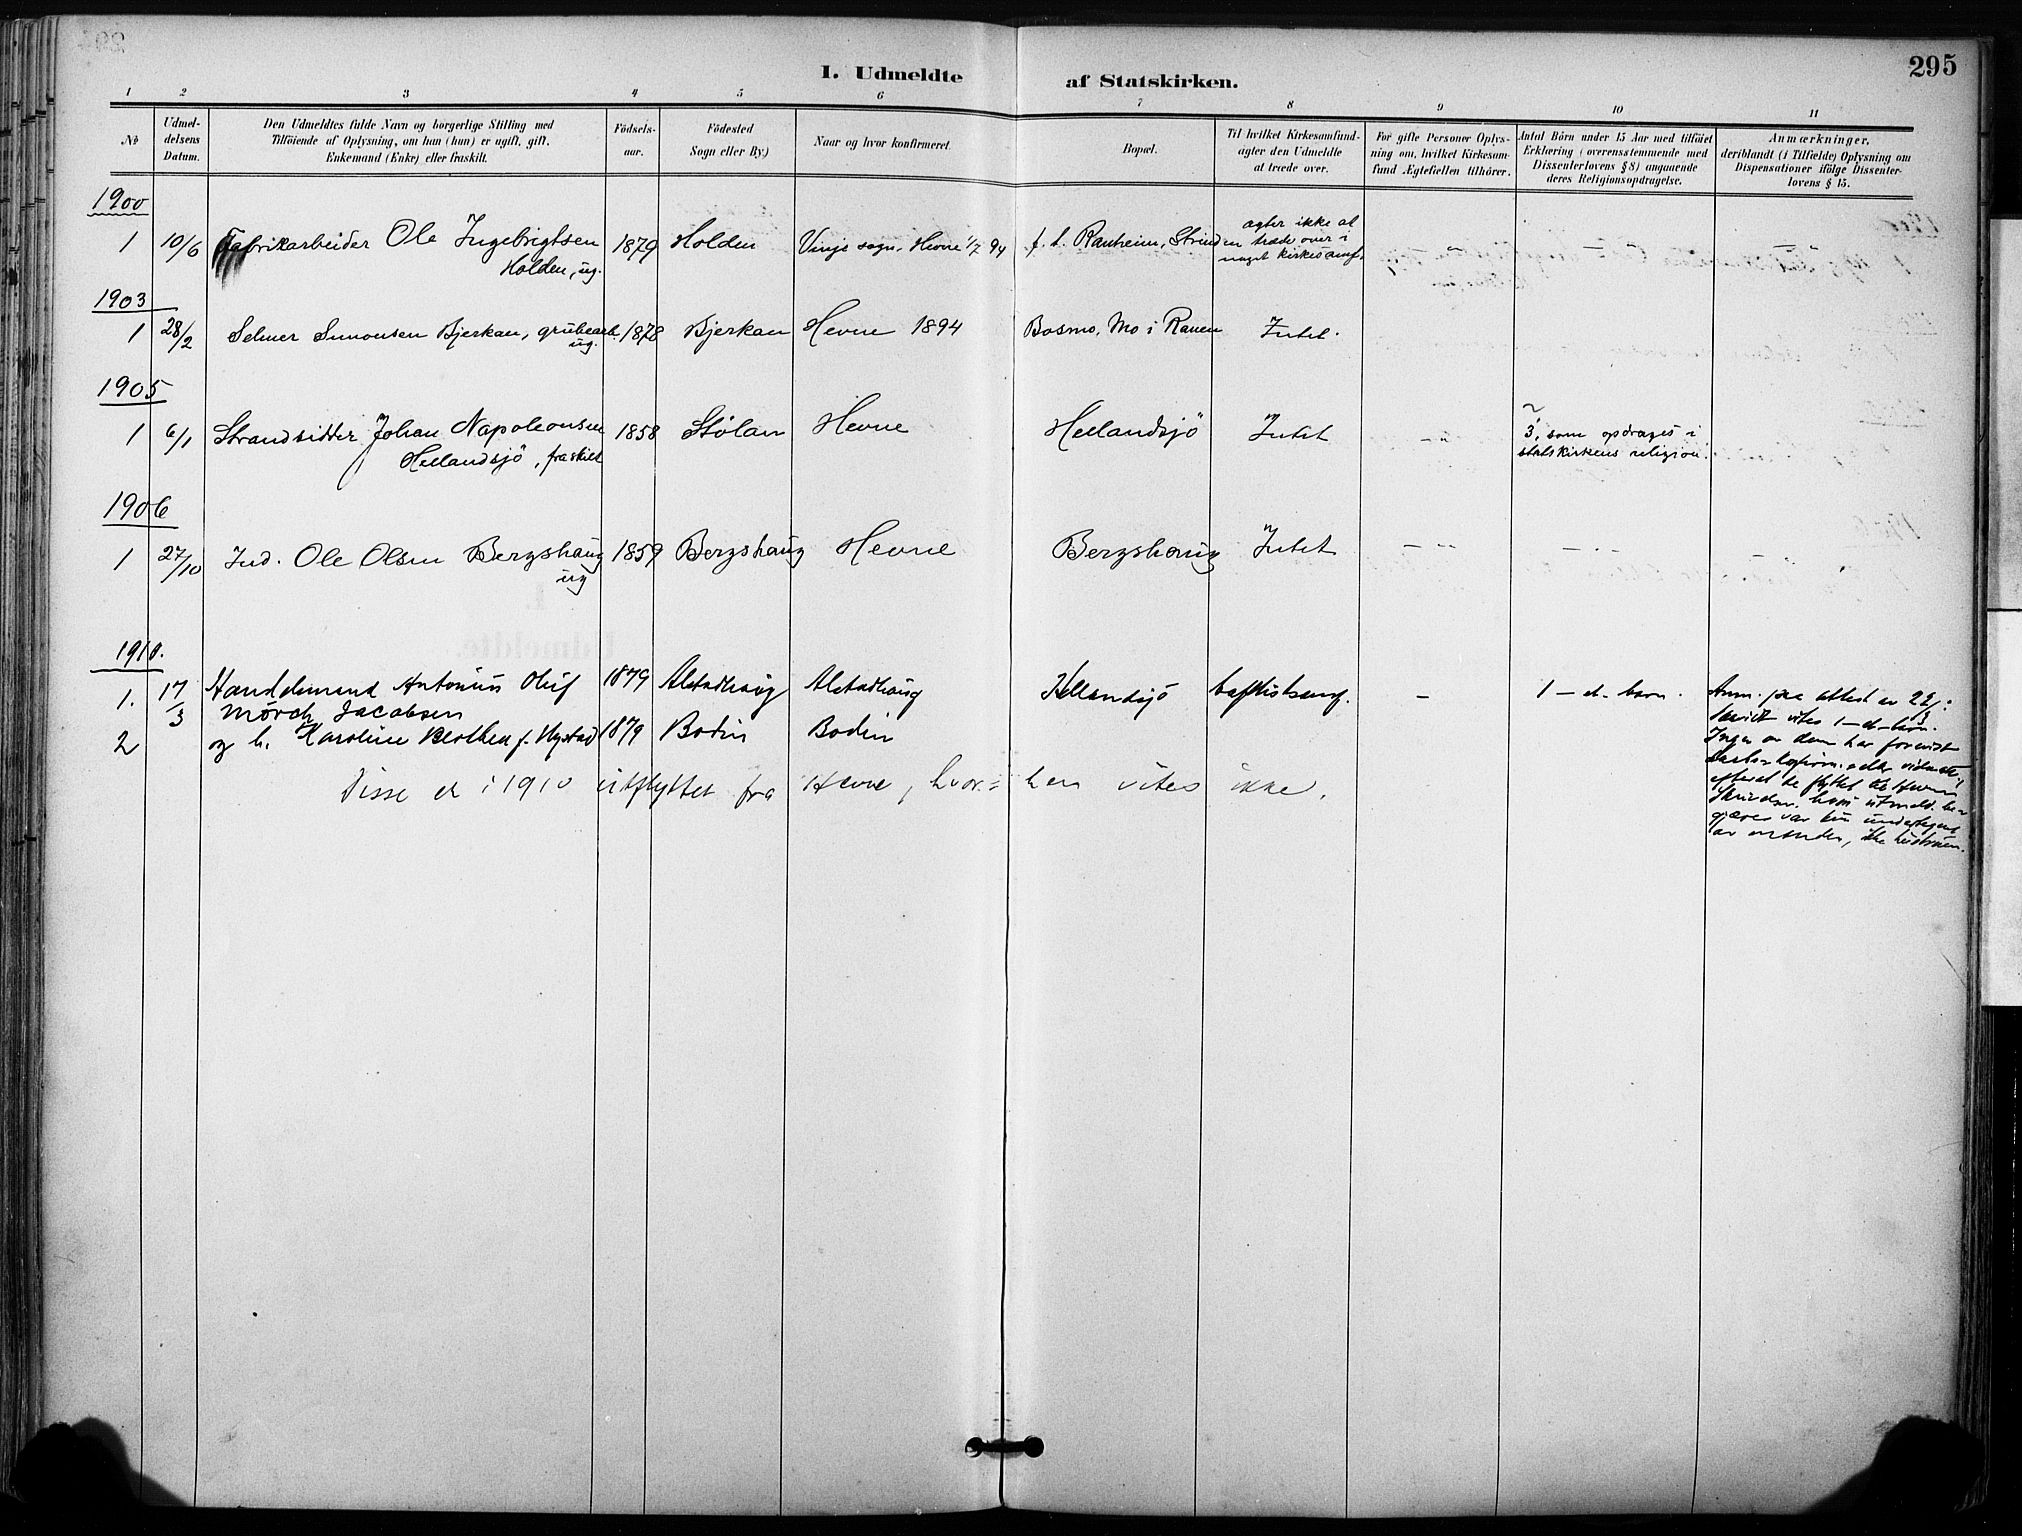 295
I. Udmeldte af Statskirken.
1 2 3 4 5 6 7 8 9 10 11
No
Udmel-
delsens
Datum.
Den Udmeldtes fulde Navn og borgerlige Stilling med
Tilföiende af Oplysning, om han (hun) er ugift, gift,
Enkemand (Enke) eller fraskilt.
Födsels-
aar.
Födested
Sogn eller By.)
Naar og hvor konfirmeret.
Bopæl.
Til hvilket Kirkesamfund
agter den Udmeldte
at træde over.
For gifte Personer Oplys-
ning om, hvilket Kirkesam-
fund Ægtefællen tilhörer.
Antal Börn under 15 Aar med tilföiet
Erklæring (overensstemmende med
Dissenterlovens § 8) angaaende
deres Religionsopdragelse.
Anmærkninger,
deriblandt (i Tilfælde) Oplysning om
Dispensationer ifölge Dissenter-
lovens § 15.
1900
1 10/6 Fabrikarbeider Ole Ingebrigtsen
Holden, ug.
1879 Holden Vinje sogn, Hevne 1/7 94 f. t. Ranheim, Strinden
agter ikke at
træde over i
noget kirkesamf.
1903
1 28/2 Selmer Simonsen Bjerkan, grubearb.
ug.
1878 Bjerkan Hevne 1894 Bosmo, Mo i Ranen Intet.
1905
1 6/1 Strandsidder Johan Napoleonsen
Hellandsjö, fraskilt
1858 Stölan Hevne Hellandsjö Intet - " -
3, som opdrages i
statskirkens religion.
1906
1 27/10 Ind. Ole Olsen Bergshaug
ug
1859 Bergshaug Hevne Bergshaug Intet
1910.
1. 17/3 Handelsmand Antonius Oluf
Mörch Jacobsen
1879 Alstadhaug Alstadhaug Hellandsjö baptistsamf. - 1 - et - barn.
2 og h. Karoline Berthea f. Nystad 1879 Bodin Bodin
Disse er i 1910 utflyttet fra Hevne, hvor=hen vites ikke.
Anm. paa attest av 22/3:
Savidt vites 1-et-barn.
Ingen av dem har forevist
daabs- konfirm. eller
efterat de flyttet til Hevne
utmeld. be-
gjæres var kun
av manden, ikke hustruen.